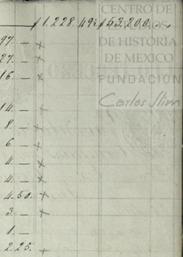 CENTRO DE
$1228.49½ $53.200.—×
DE HISTORIA
97.—×
DE MEXICO
27.—×
16.—×
FUNDACION
Carlos Slim
14.—×
8.—×
6.—×
4.—×
4.—×
4.50.×
3.—×
1.—
2.25.×